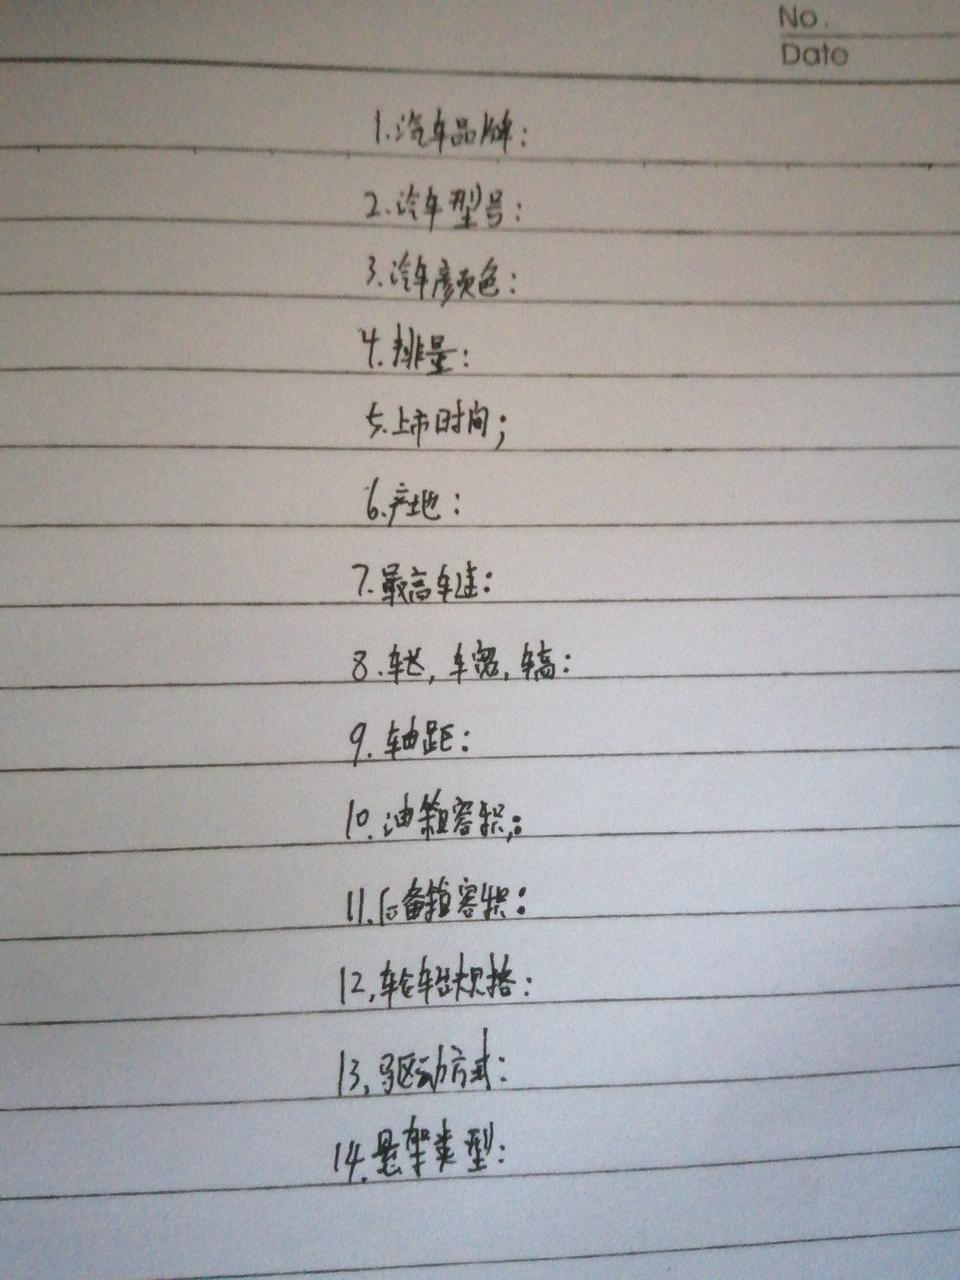 No.
Date
1.汽车品牌:
2.汽车型号:
3.汽车颜色:
4.排量:
5.上市时间;
6.产地:
7.最高车速:
8.车长,车宽,车高:
9.轴距:
10.油箱容积:
11.后备箱容积:
12,轮毂规格:
13,驱动方式:
14.悬架类型: